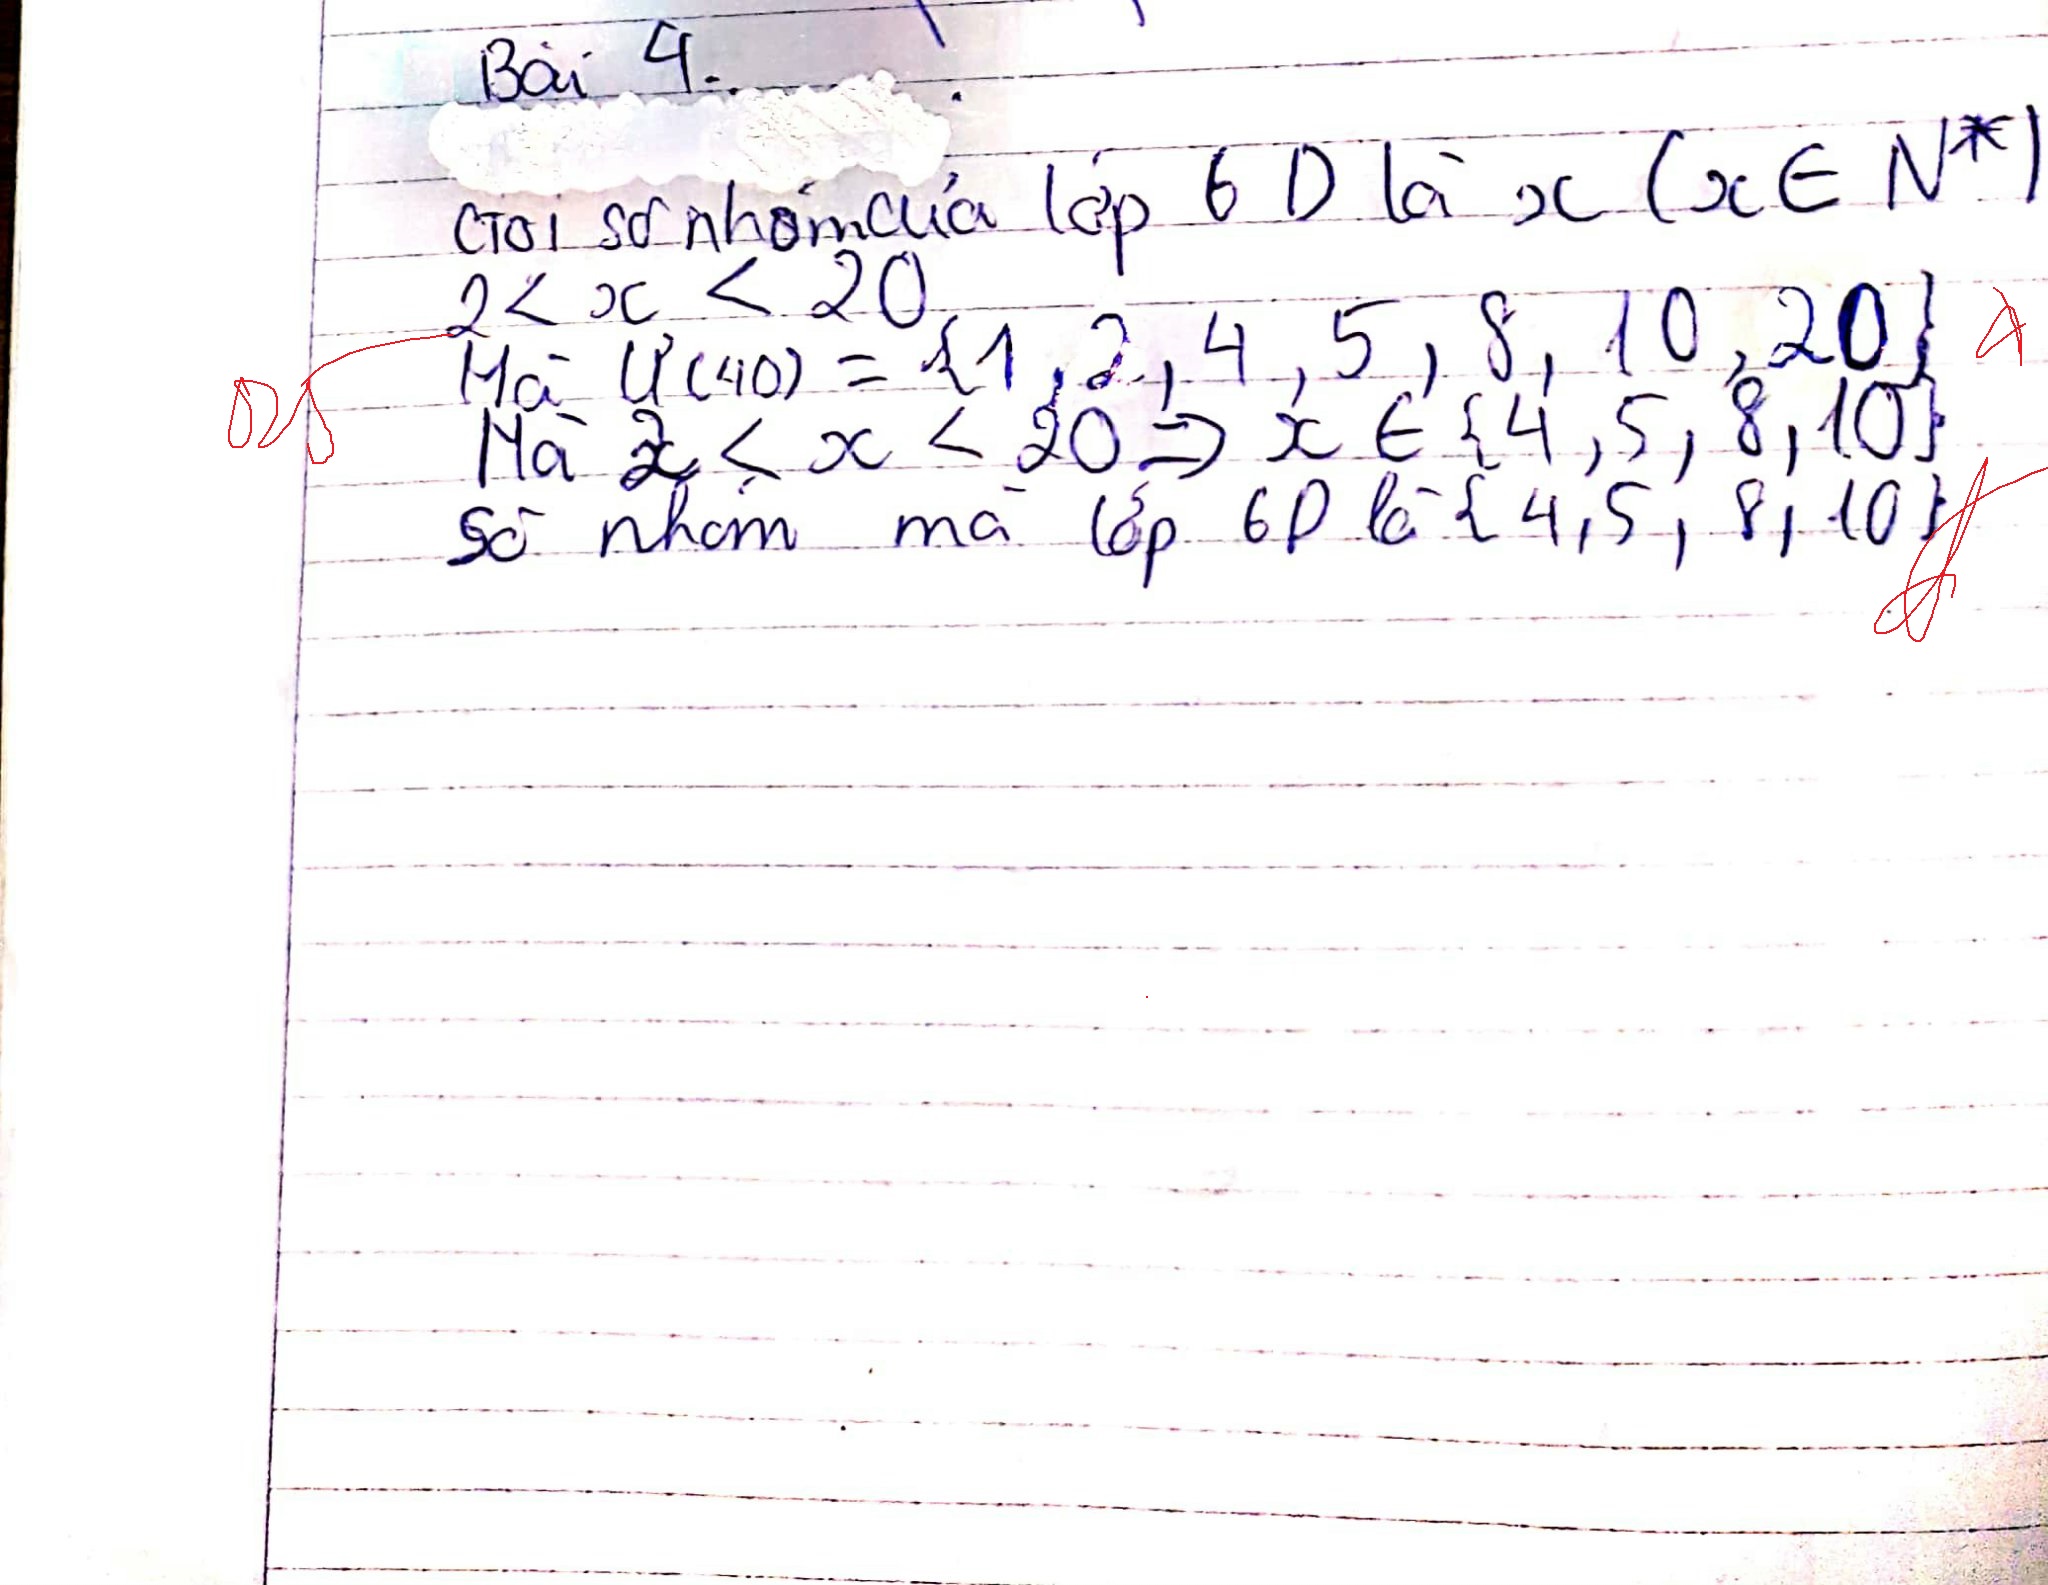 Bài 4.
Gọi số nhóm của lớp 6D là x (x ∈ N*)
2 < x < 20
Mà Ư(40) = {1, 2, 4, 5, 8, 10, 20}
Mà 2 < x < 20 => x ∈ {4, 5, 8, 10}
Số nhóm mà lớp 6D là {4, 5, 8, 10}